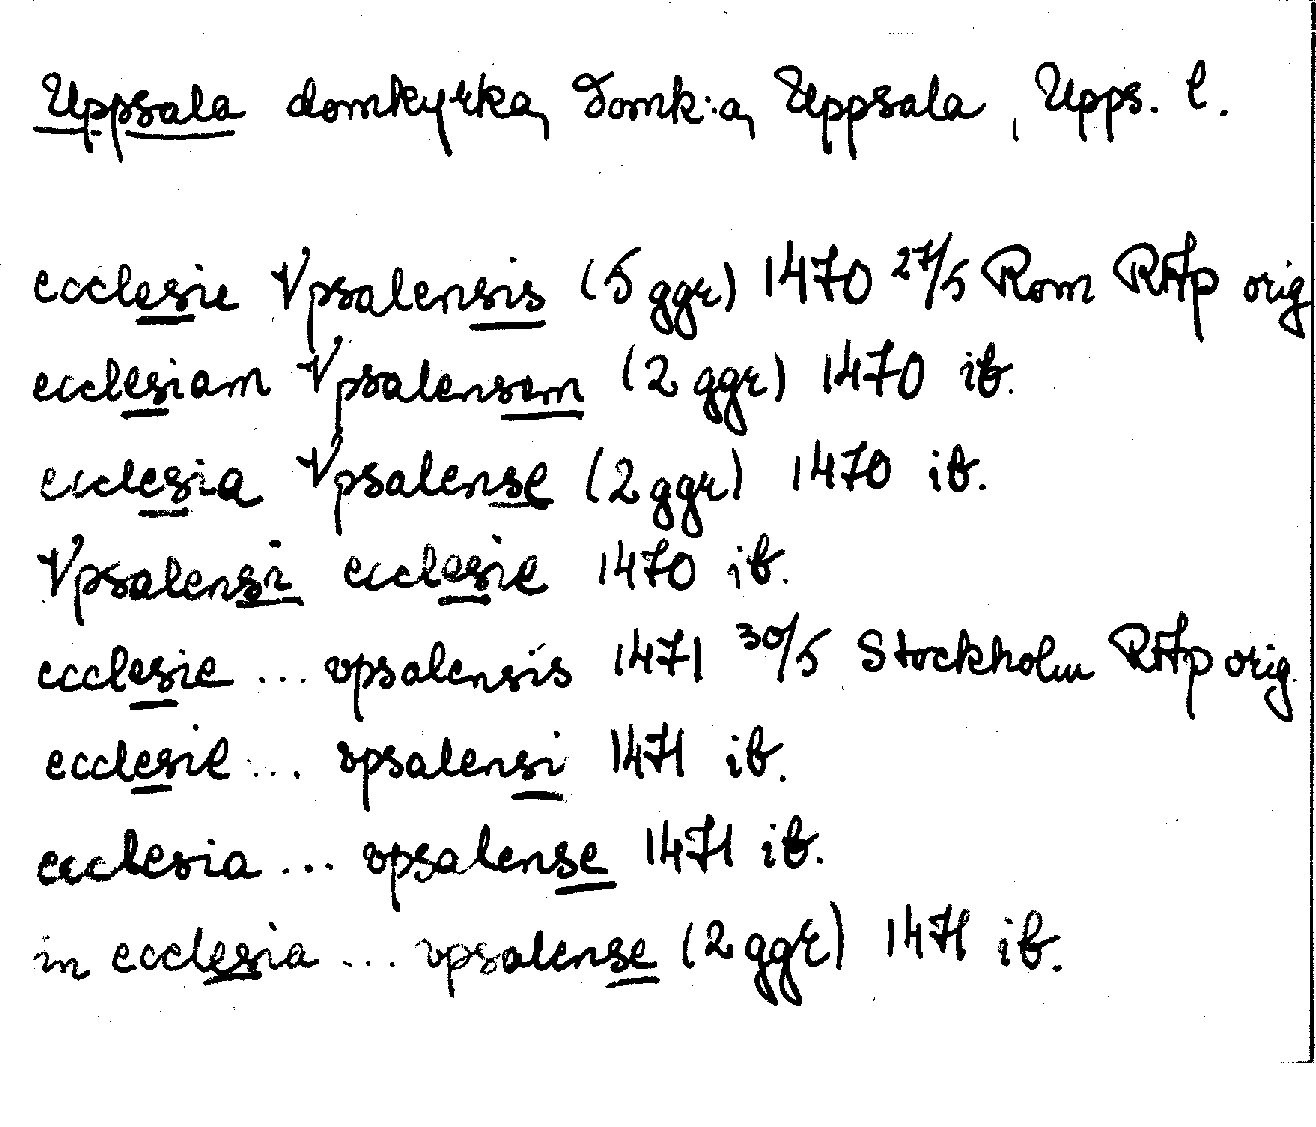 Uppsala domkyrka, Domk:a, Uppsala, Upps. l.
ecclesie Vpsalensis (5 ggr) 1470 27/5 Rom RAp orig
ecclesiam Vpsalensem (2 ggr) 1470 ib.
ecclesia Vpsalense (2 ggr) 1470 ib.
Vpsalensi ecclesie 1470 ib.
ecclesie ... vpsalensis 1471 30/5 Stockholm RAp orig.
ecclesie ... vpsalensi 1471 ib.
ecclesia ... vpsalense 1471 ib.
in ecclesia ... vpsalense (2 ggr) 1471 ib.